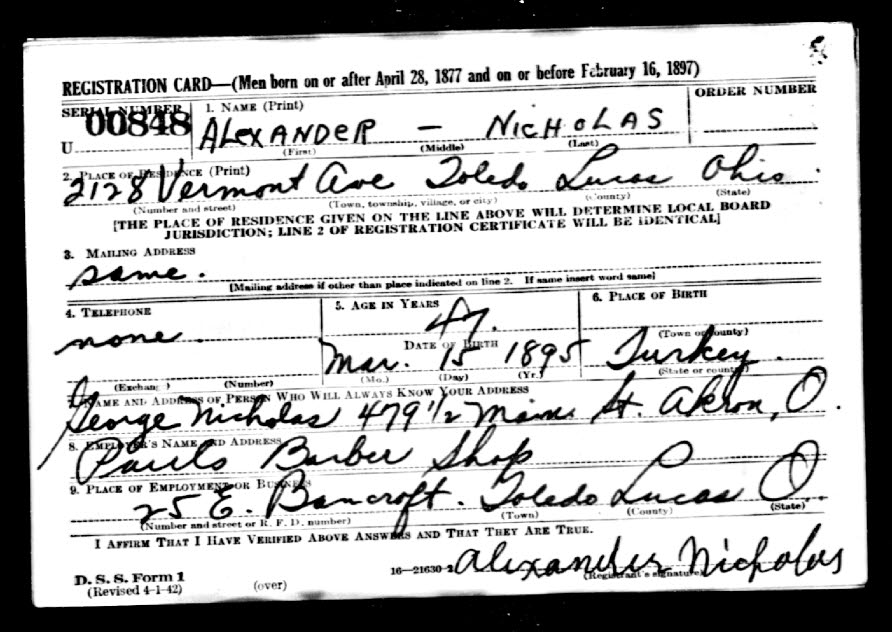 REGISTRATION CARD—(Men born on or after April 28, 1877 and on or before February 16, 1897)
SERIAL NUMBER 1. NAME (Print) ORDER NUMBER
U 00848 ALEXANDER — NICHOLAS
(First) (Middle) (Last)
2. PLACE OF RESIDENCE (Print)
2128 Vermont Ave Toledo Lucas Ohio.
(Number and street) (Town, township, village, or city) (County) (State)
[THE PLACE OF RESIDENCE GIVEN ON THE LINE ABOVE WILL DETERMINE LOCAL BOARD
JURISDICTION; LINE 2 OF REGISTRATION CERTIFICATE WILL BE IDENTICAL]
3. MAILING ADDRESS
same.
[Mailing address if other than place indicated on line 2. If same insert word same]
4. TELEPHONE 5. AGE IN YEARS 6. PLACE OF BIRTH
none. 47.
DATE OF BIRTH (Town or county)
Mar. 15 1895 Turkey.
(Exchange) (Number) (Mo.) (Day) (Yr.) (State or country)
7. NAME AND ADDRESS OF PERSON WHO WILL ALWAYS KNOW YOUR ADDRESS
George Nicholas 479 1/2 St. Akron, O.
8. EMPLOYER'S NAME AND ADDRESS
Pauls Barber Shop
9. PLACE OF EMPLOYMENT OR BUSINESS
25 E. Bancroft. Toledo Lucas O
(Number and street or R. F. D. number) (Town) (County) (State)
I AFFIRM THAT I HAVE VERIFIED ABOVE ANSWERS AND THAT THEY ARE TRUE.
D. S. S. Form 1 16—21630-2 Alexander Nicholas
(Revised 4-1-42) (over) (Registrant's signature)